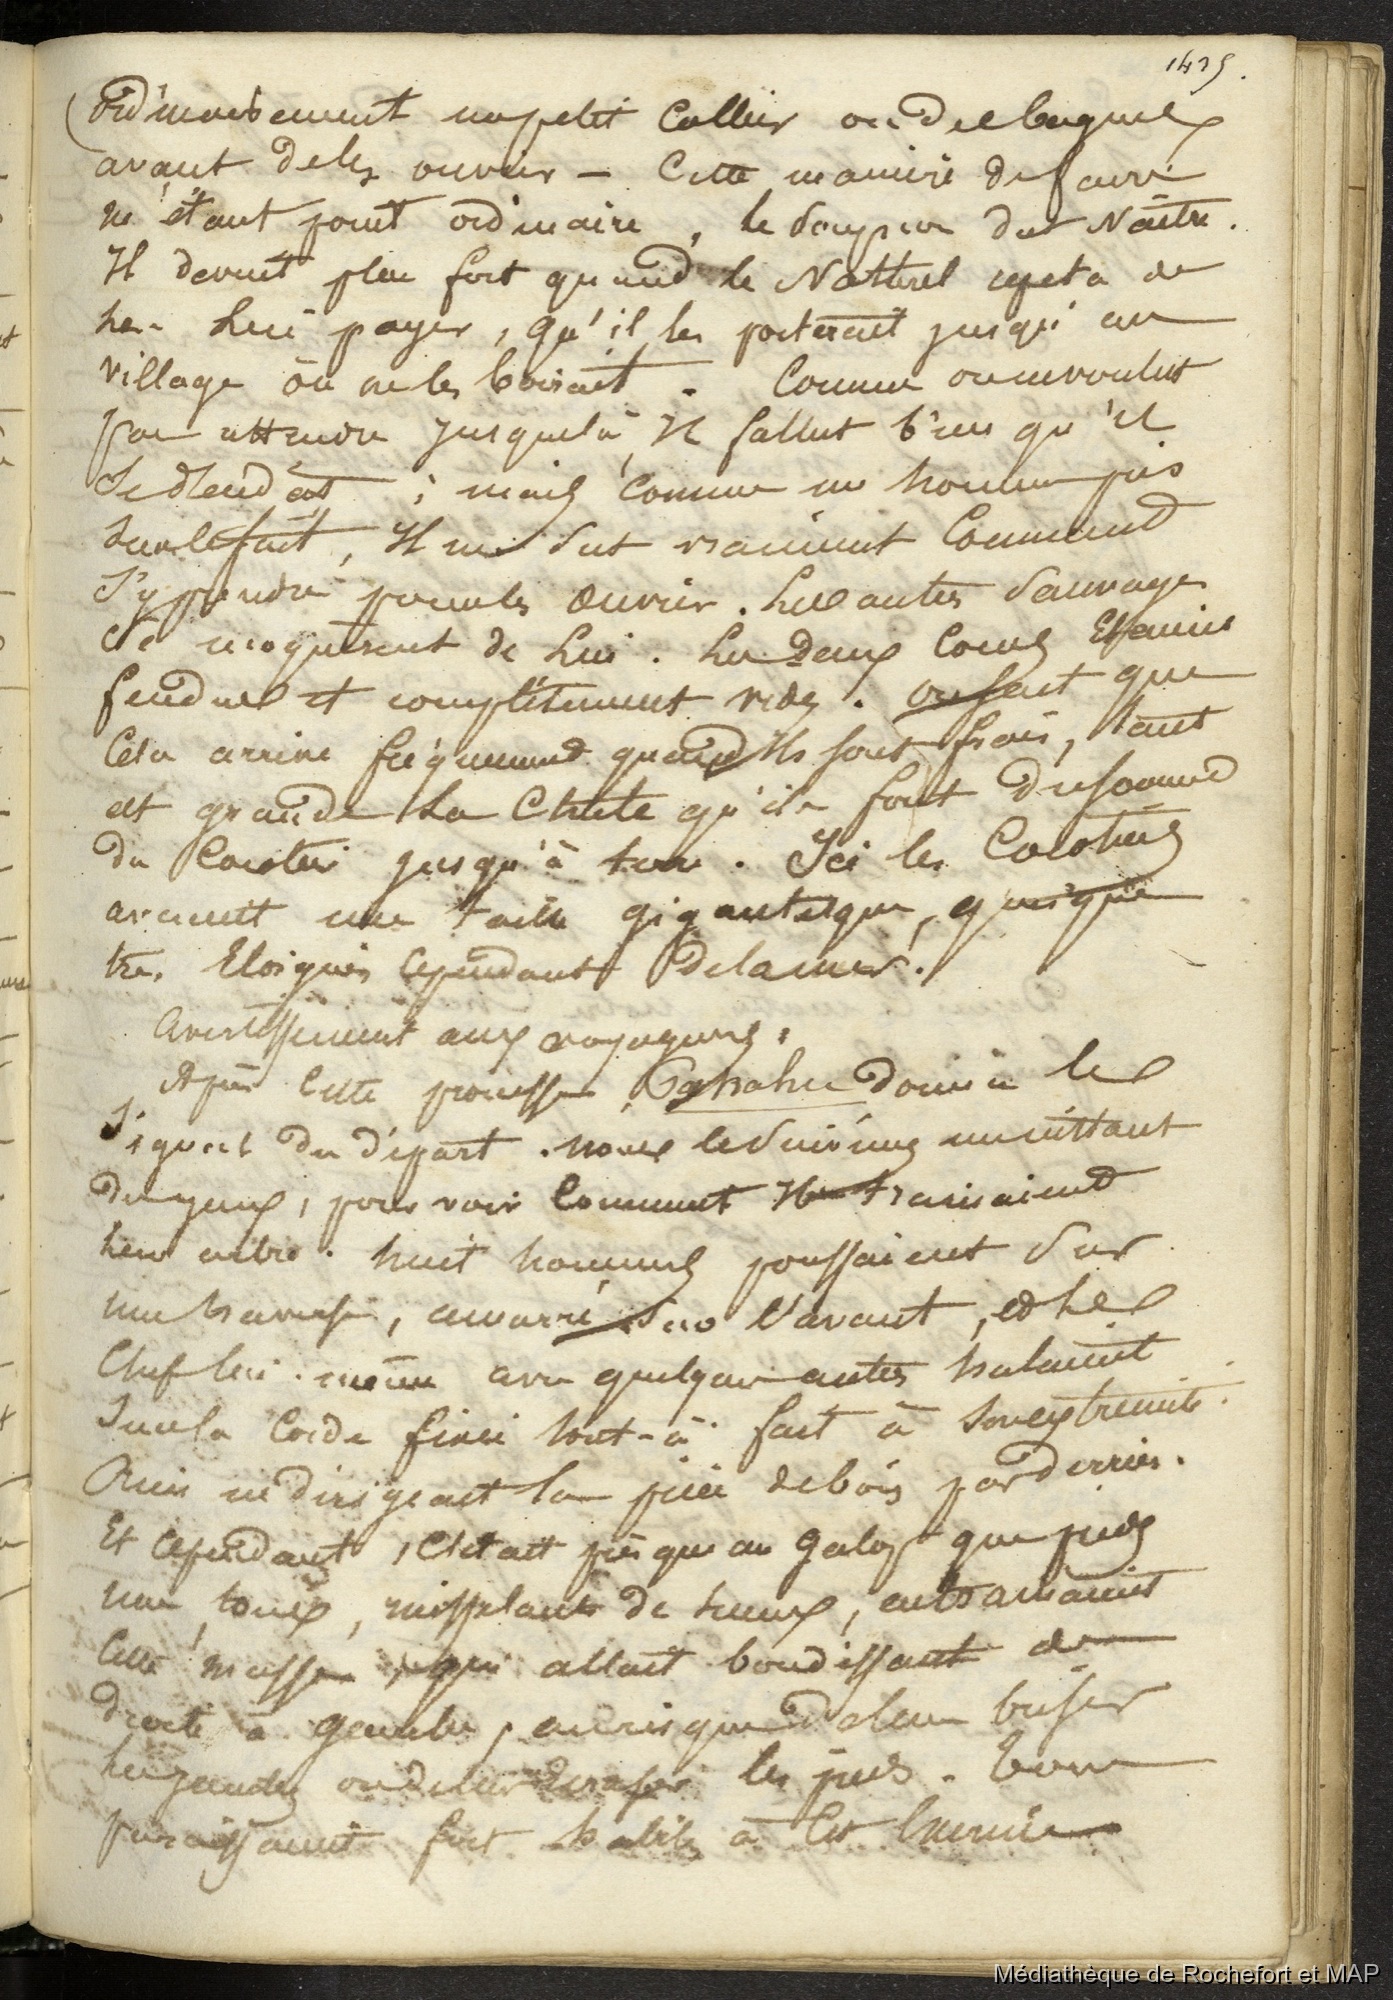 1435.
ordinairement un petit Collier ou des bagues
avant de les ouvrir — Cette manière de faire
n'étant point ordinaire, le soupçon dut Naître.
Il devint plus fort quand le Naturel répéta de
les lui payer, qu'il les porterait jusqu'au
village où on les boirait. Comme on ne voulut
pas attendre jusque là, Il fallut bien qu'il
se décidât ; mais comme un homme pris
sur le fait, Il ne sut vraiment Comment
s'y prendre pour les ouvrir. Les autres Sauvages
se moquèrent de lui. Les Deux Cocos Etaient
fendus et complètement vides. On sait que
Cela arrive fréquemment quand Ils sont frais, tant
est grande La Chute qu'ils font du sommet
du Cocotier jusqu'à terre. Ici les Cocotiers
avaient une taille gigantesque, quoique
très Eloignés Cependant De la mer.
Avertissement aux voyageurs.
Après Cette prouesse, donna le
Signal du départ. nous le suivîmes un instant
des yeux, pour voir Comment Ils traînaient
leur arbre. huit hommes poussaient Sur
une traverse, amarré Sur l'avant, et le
Chef lui-même avec quelques autres halaient
Sur la Corde fixée tout-à-fait à son extrémité.
Rien ne dirigeait la pièce de bois par derrière.
Et Cependant, C'était presque au galop que pieds
nus, tous, ruisselants de sueur, entraînaient
Cette masse qui allait bondissant de
droite à gauche, au risque De leur briser
les jambes ou de leur Ecraser les pieds. Tous
paraissaient fort habiles à Cet Exercice.
Médiathèque de Rochefort et MAP